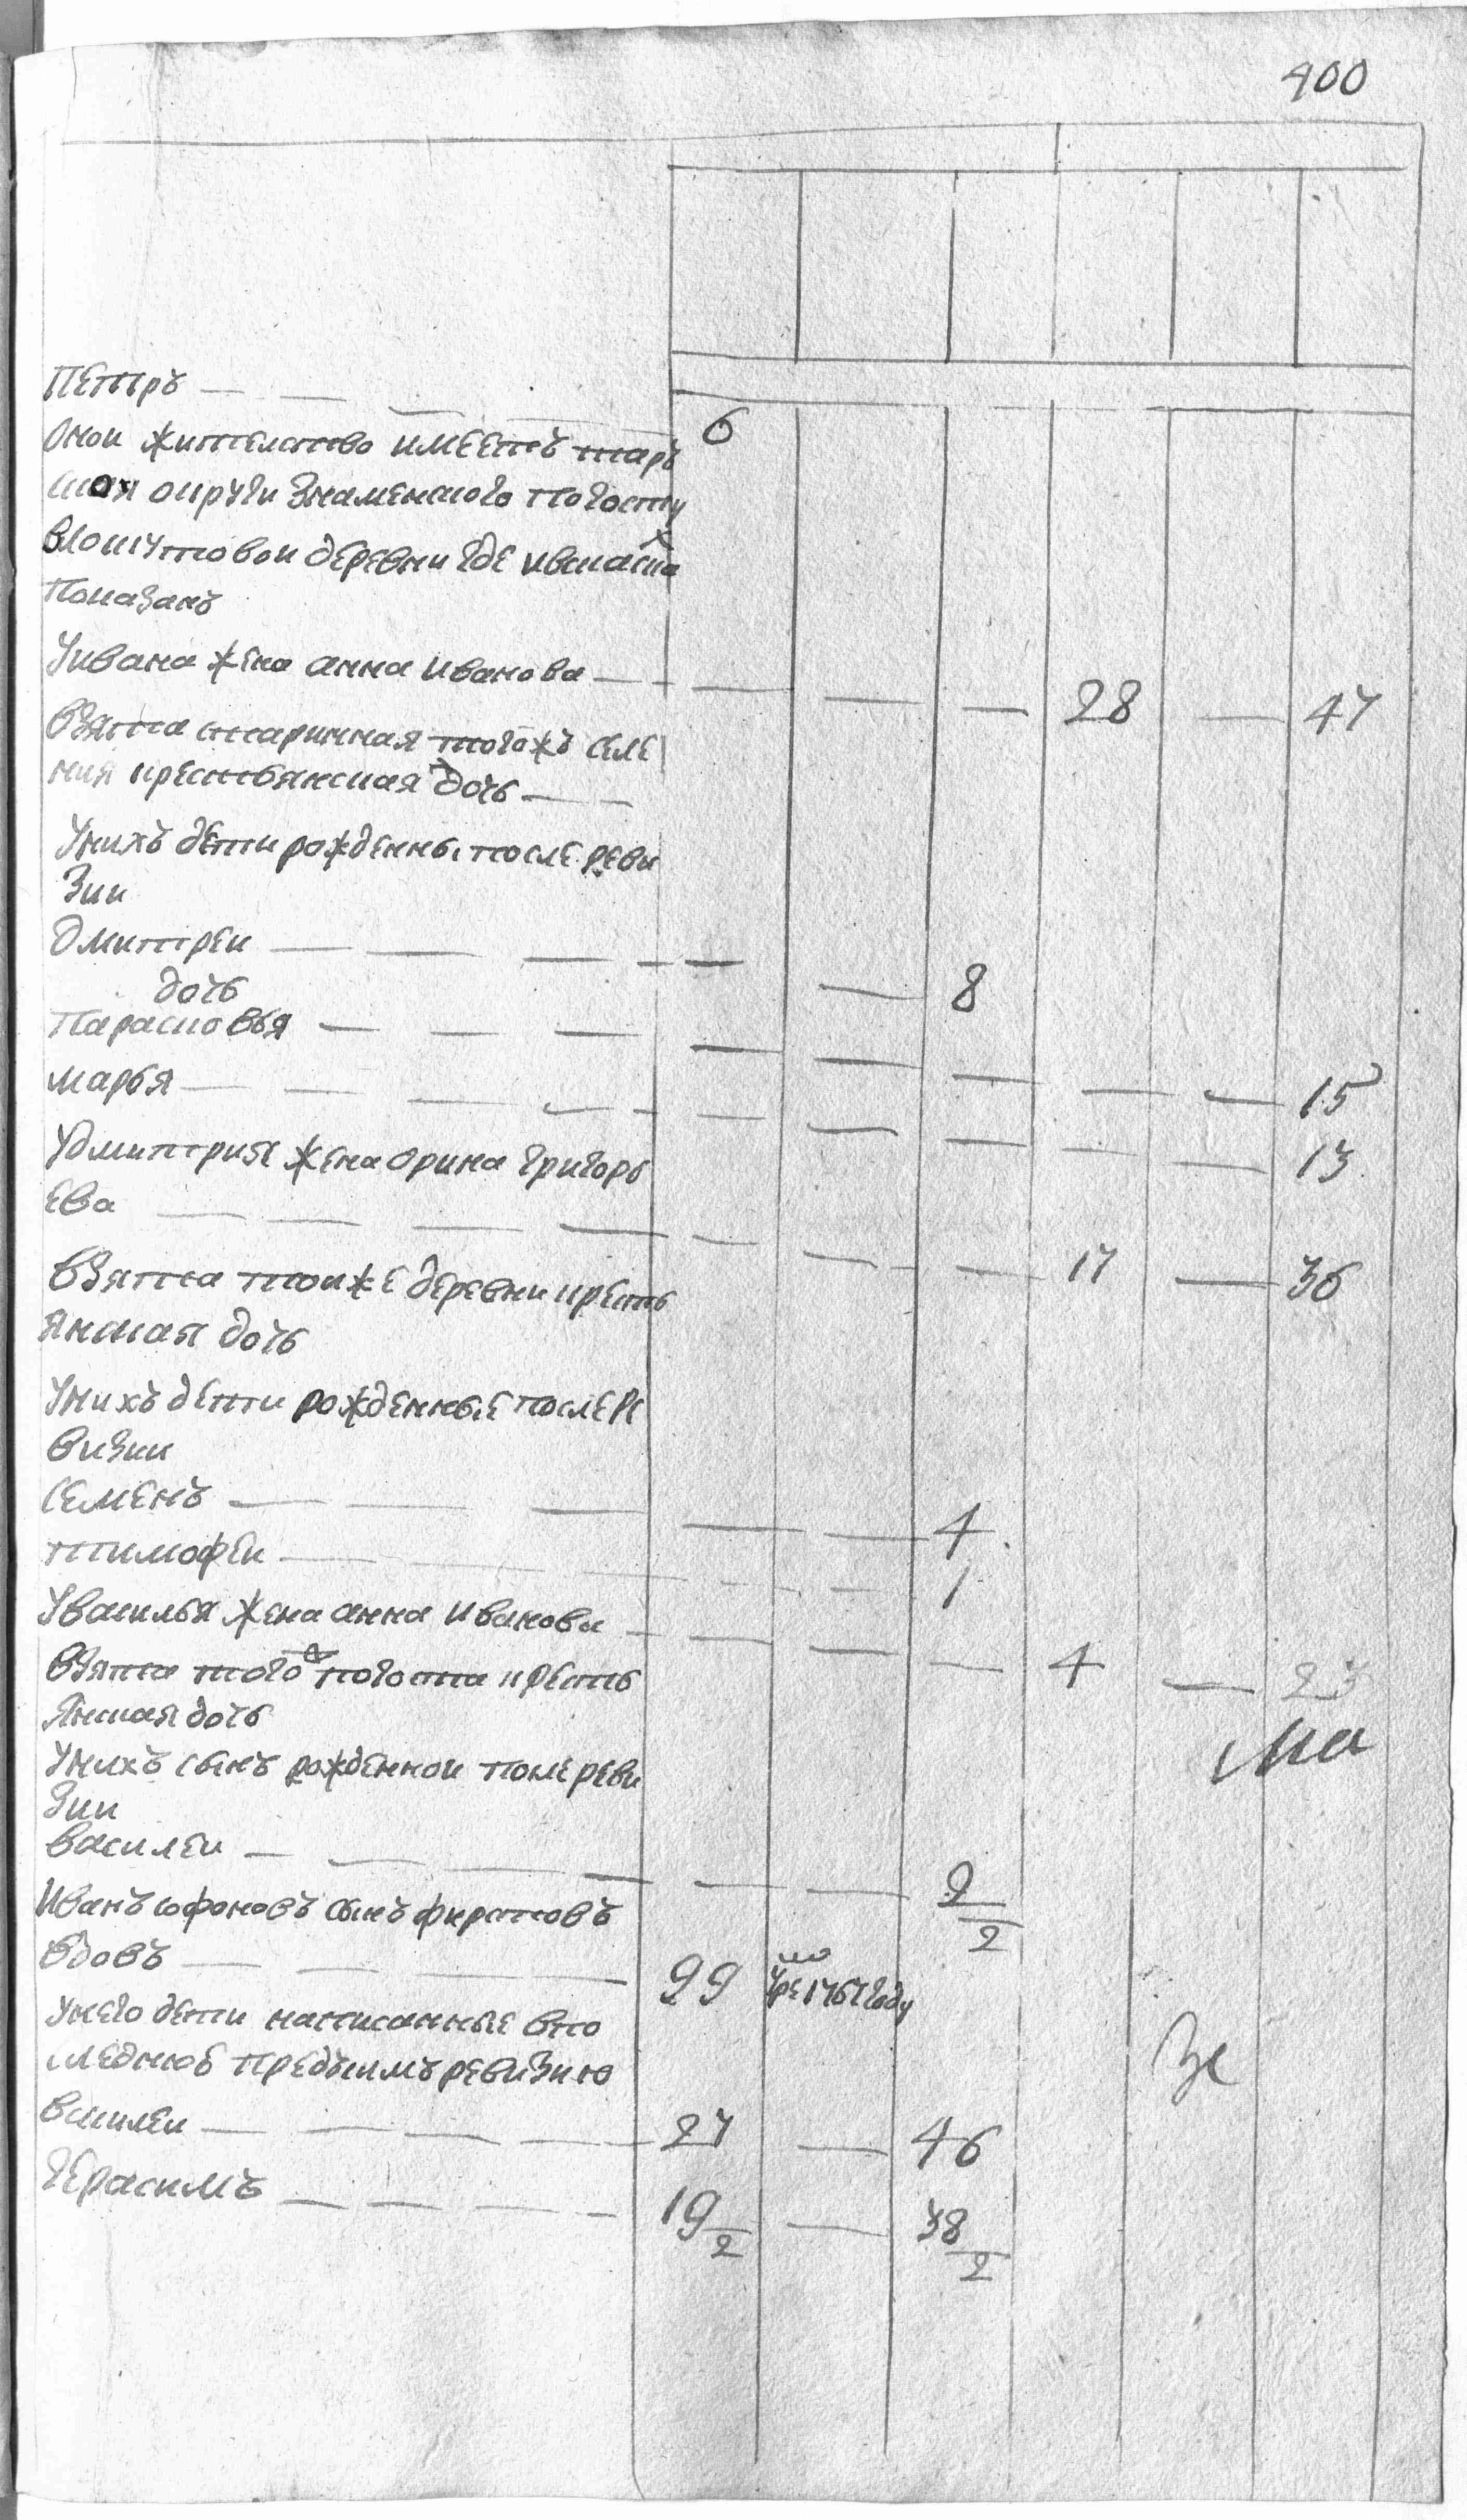 400
Петръ — — — — 6
Оной жительство имеетъ таръ
ской округи Знаменского погосту
в деревни где и в скаске
показанъ
У Ивана жена анна Иванова — — — — — 28 — 47
Взята старинная тогожъ селе
ния крестьянская дочь — —
У нихъ дети рожденны после реви
зии
Дмитреи — — — — — — 8
дочь
Парасковья — — — — — — — — 15
Марья — — — — — — — — — 13
У дмитрия жена орина григорь
ева — — — — — — — 17 — 36
Взята тоиже деревни кресть
янская дочь
У нихъ дети рожденные после ре
визии
Семенъ — — — — — 4
тимофеи — — — — — 1
У василья жена анна Иванова — — — — 4 — 23
Взята того погоста кресть
янская дочь
У нихъ сынъ рожденнои после реви
зии
Василеи — — — — — — 2
2
Иванъ софоновъ сынъ
вдовъ — — — — 99 умре 1767 году
У него дети написанные в по
следнюю предъ симъ ревизию
Василеи — — — — 27 — 46
Герасимъ — — — — 19 — 38
2 2